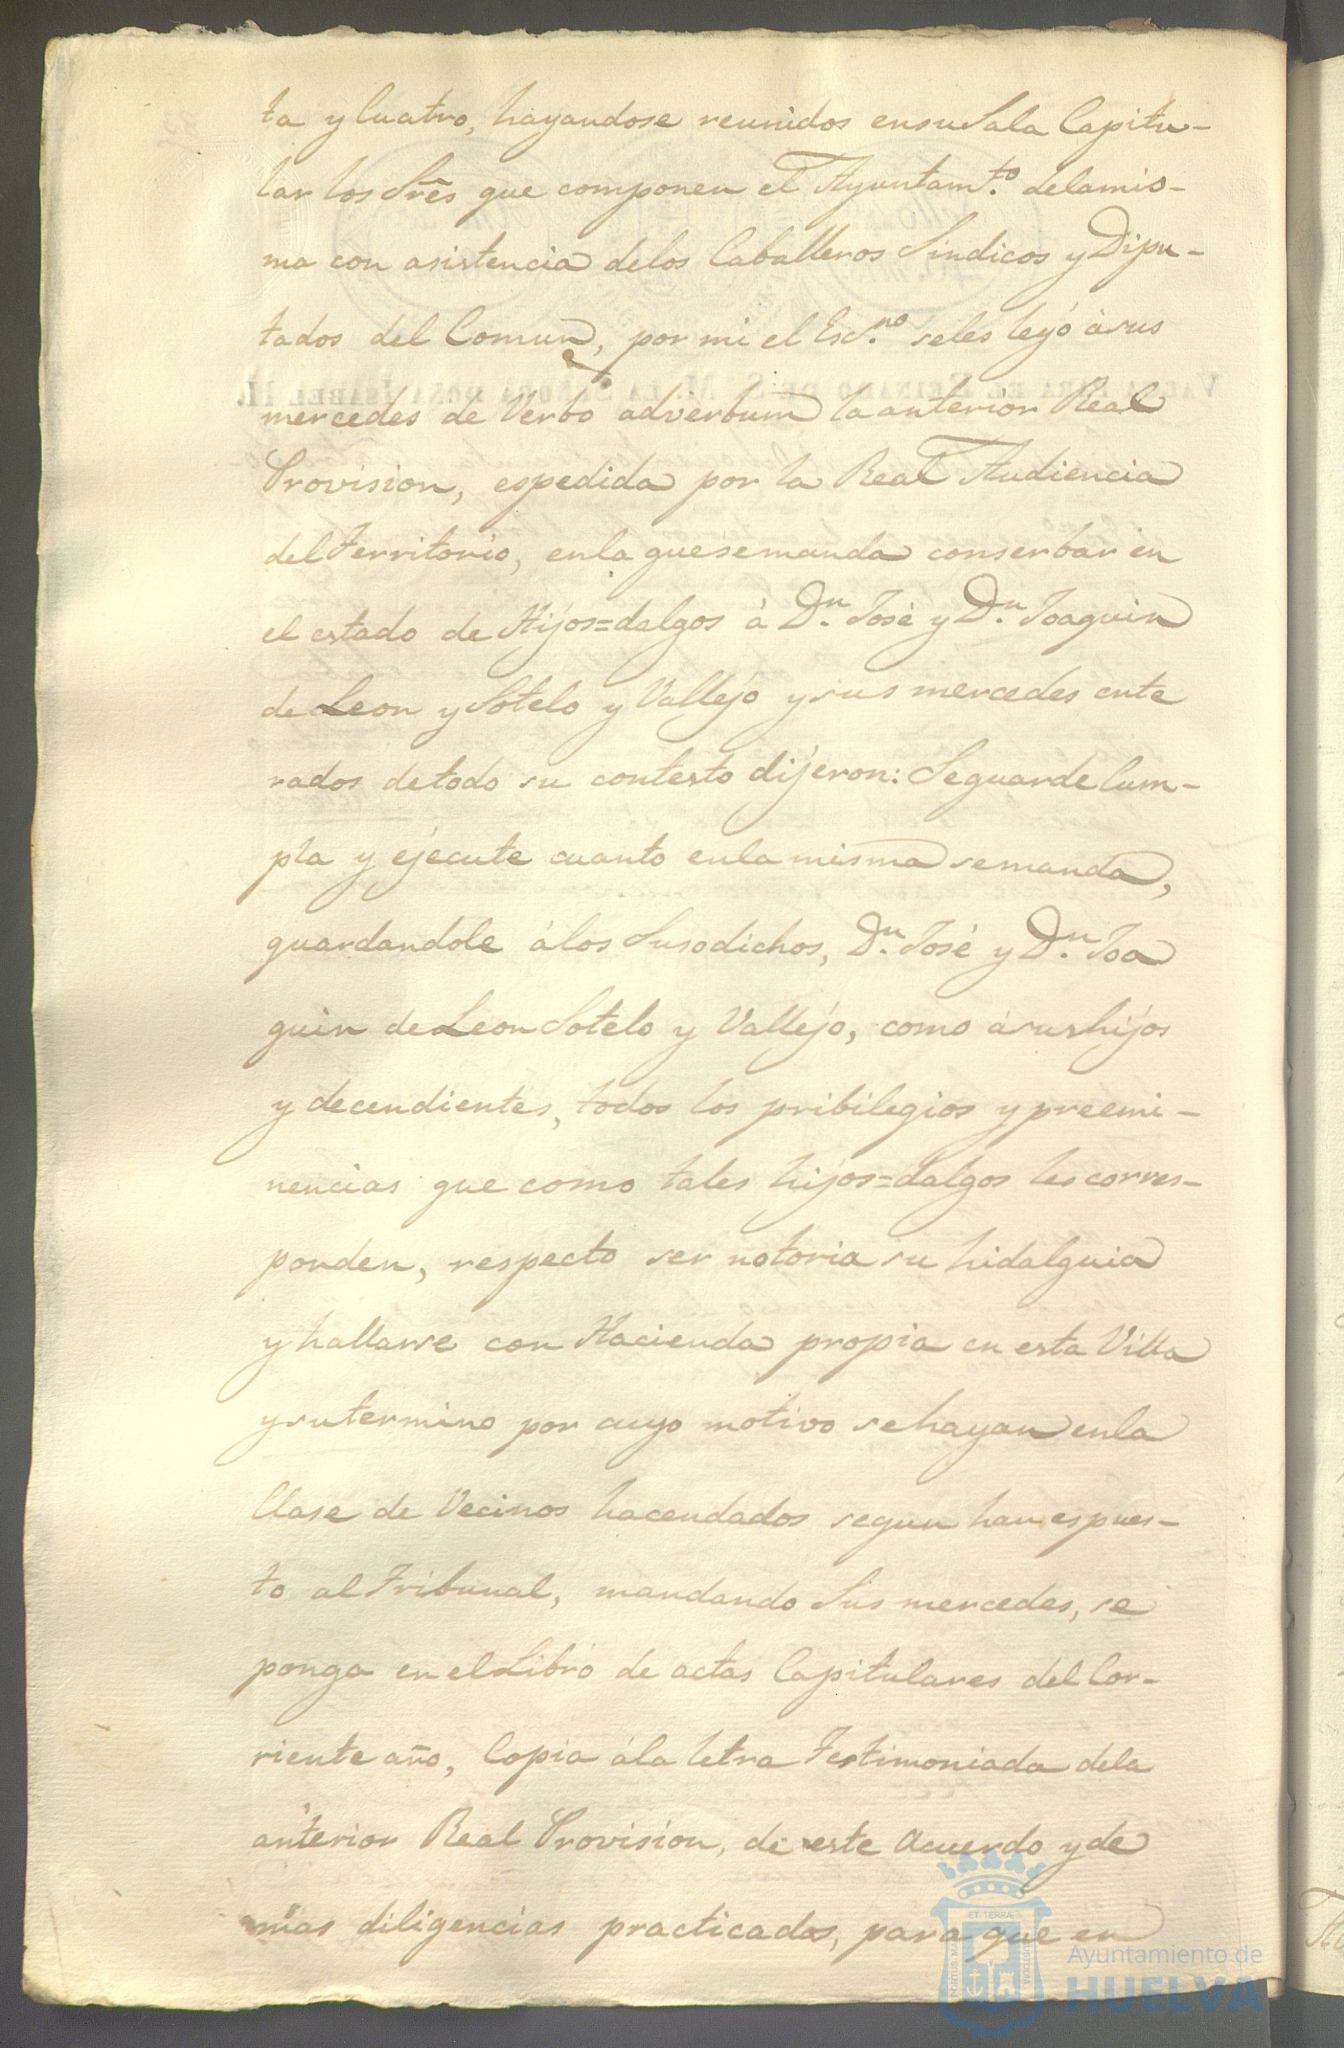 ta y Cuatro, hayandose reunidos en su Sala Capitu-
lar los Srēs que componen el Ayuntam.to de la mis-
ma con asistencia de los Caballeros Sindicos y Dipu-
tados del Comun, por mi el Esc.no se les leyó à sus
mercedes de Verbo adverbum la anterior Real
Provision, espedida por la Real Audiencia
del Territorio, en la que se manda conserbar en
el estado de Hijos=dalgos à D.n José y D.n Joaquin
de Leon y Sotelo y Vallejo y sus mercedes ente
rados de todo su contesto dijeron: Se guarde Cum-
pla y éjecute cuanto en la misma se manda,
guardandole á los Susodichos, D.n José y D.n Joa
quin de Leon Sotelo y Vallejo, como á sus hijos
y decendientes, todos los pribilegios y preemi-
nencias que como tales hijos=dalgos les corres-
ponden, respecto ser notoria su hidalguia
y hallarse con Hacienda propia en esta Villa
y su termino por cuyo motivo se hayan en la
Clase de Vecinos hacendados segun han espues-
to al Tribunal, mandando Sus mercedes, se
ponga en el Libro de actas Capitulares del Cor-
riente año, Copia á la letra Testimoniada de la
anterior Real Provision, de este Acuerdo y de
mas diligencias practicadas, para que en
VALGA PARA EL REINADO DE S. M. LA SEÑORA DOÑA ISABEL II.
Ayuntamiento de
HUELVA